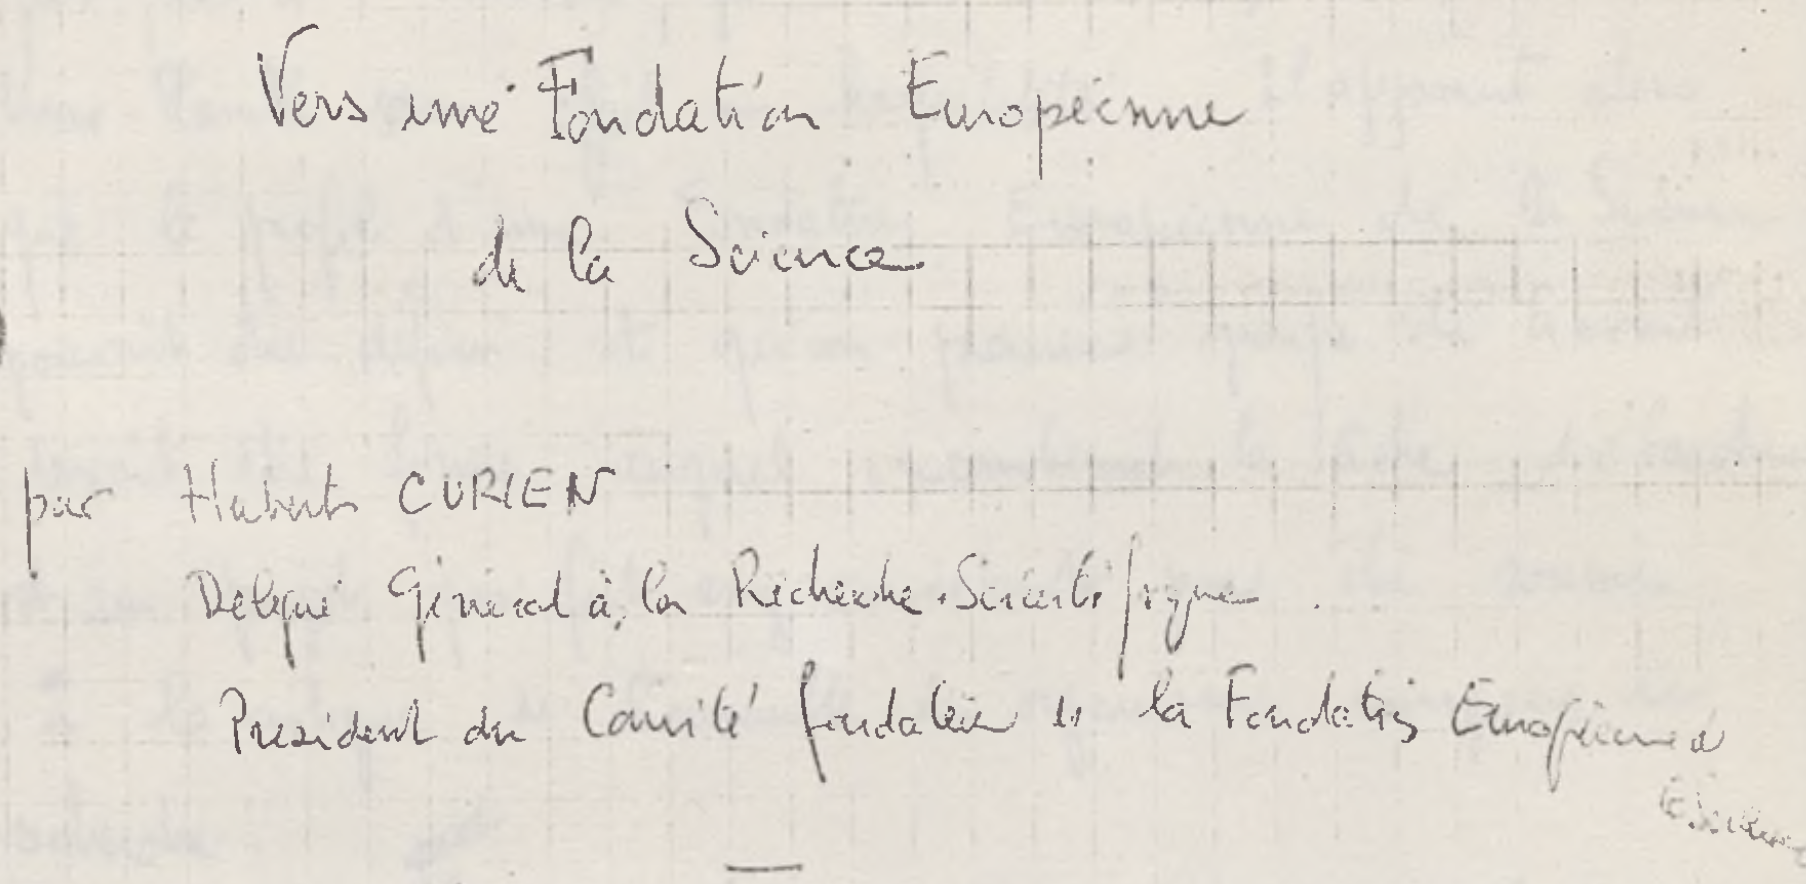 Vers une Fondation Européenne
de la Science
par Hubert CURIEN
Délégué Général à la Recherche Scientifique
Président du Comité fondateur de la Fondation Européenne de
la Science